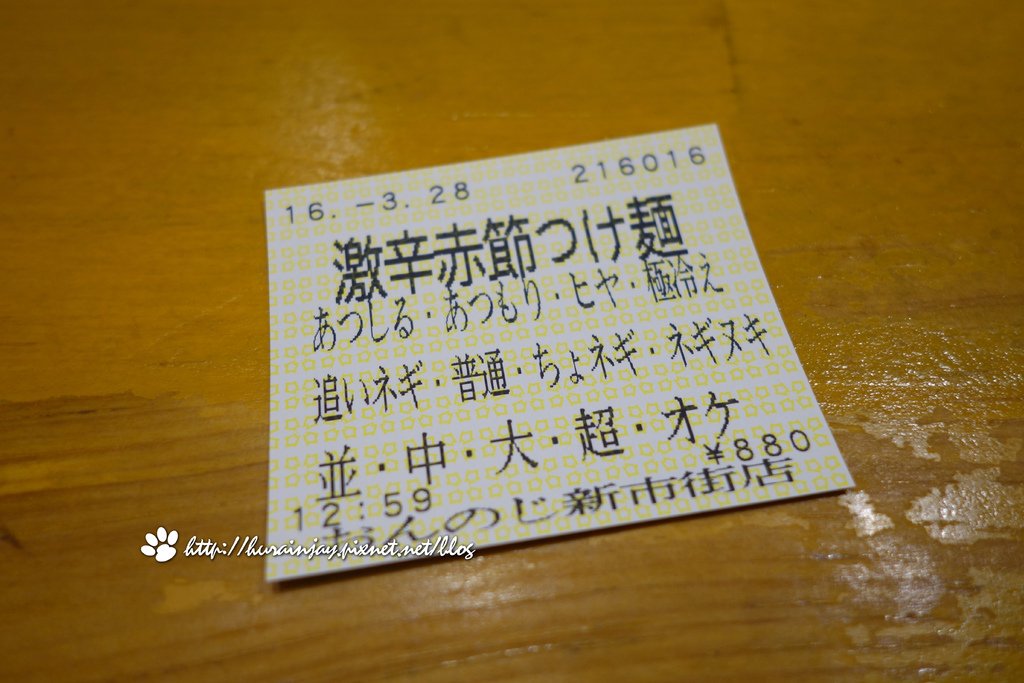 16. -3. 28 216016
激辛赤節つけ麺
あつしる・あつもり・ヒヤ・極冷え
追いネギ・普通・ちょネギ・ネギヌキ
並・中・大・超・オケ
¥880
12:59
おんのじ新市街店
http://hurainjay.pixnet.net/blog